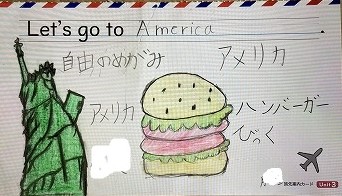 Let's go to America.
自由のめがみ
アメリカ
アメリカ
ハンバーガー
びっく
Unit 3